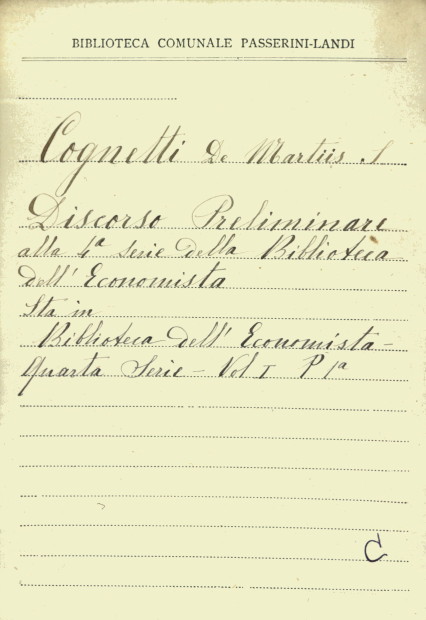 BIBLIOTECA COMUNALE PASSERINI-LANDI
Cognetti De Martiis S
Discorso Preliminare
alla 4ª serie della Biblioteca
dell' Economista
Sta in
Biblioteca dell' Economista -
Quarta Serie - Vol I P 1ª
C